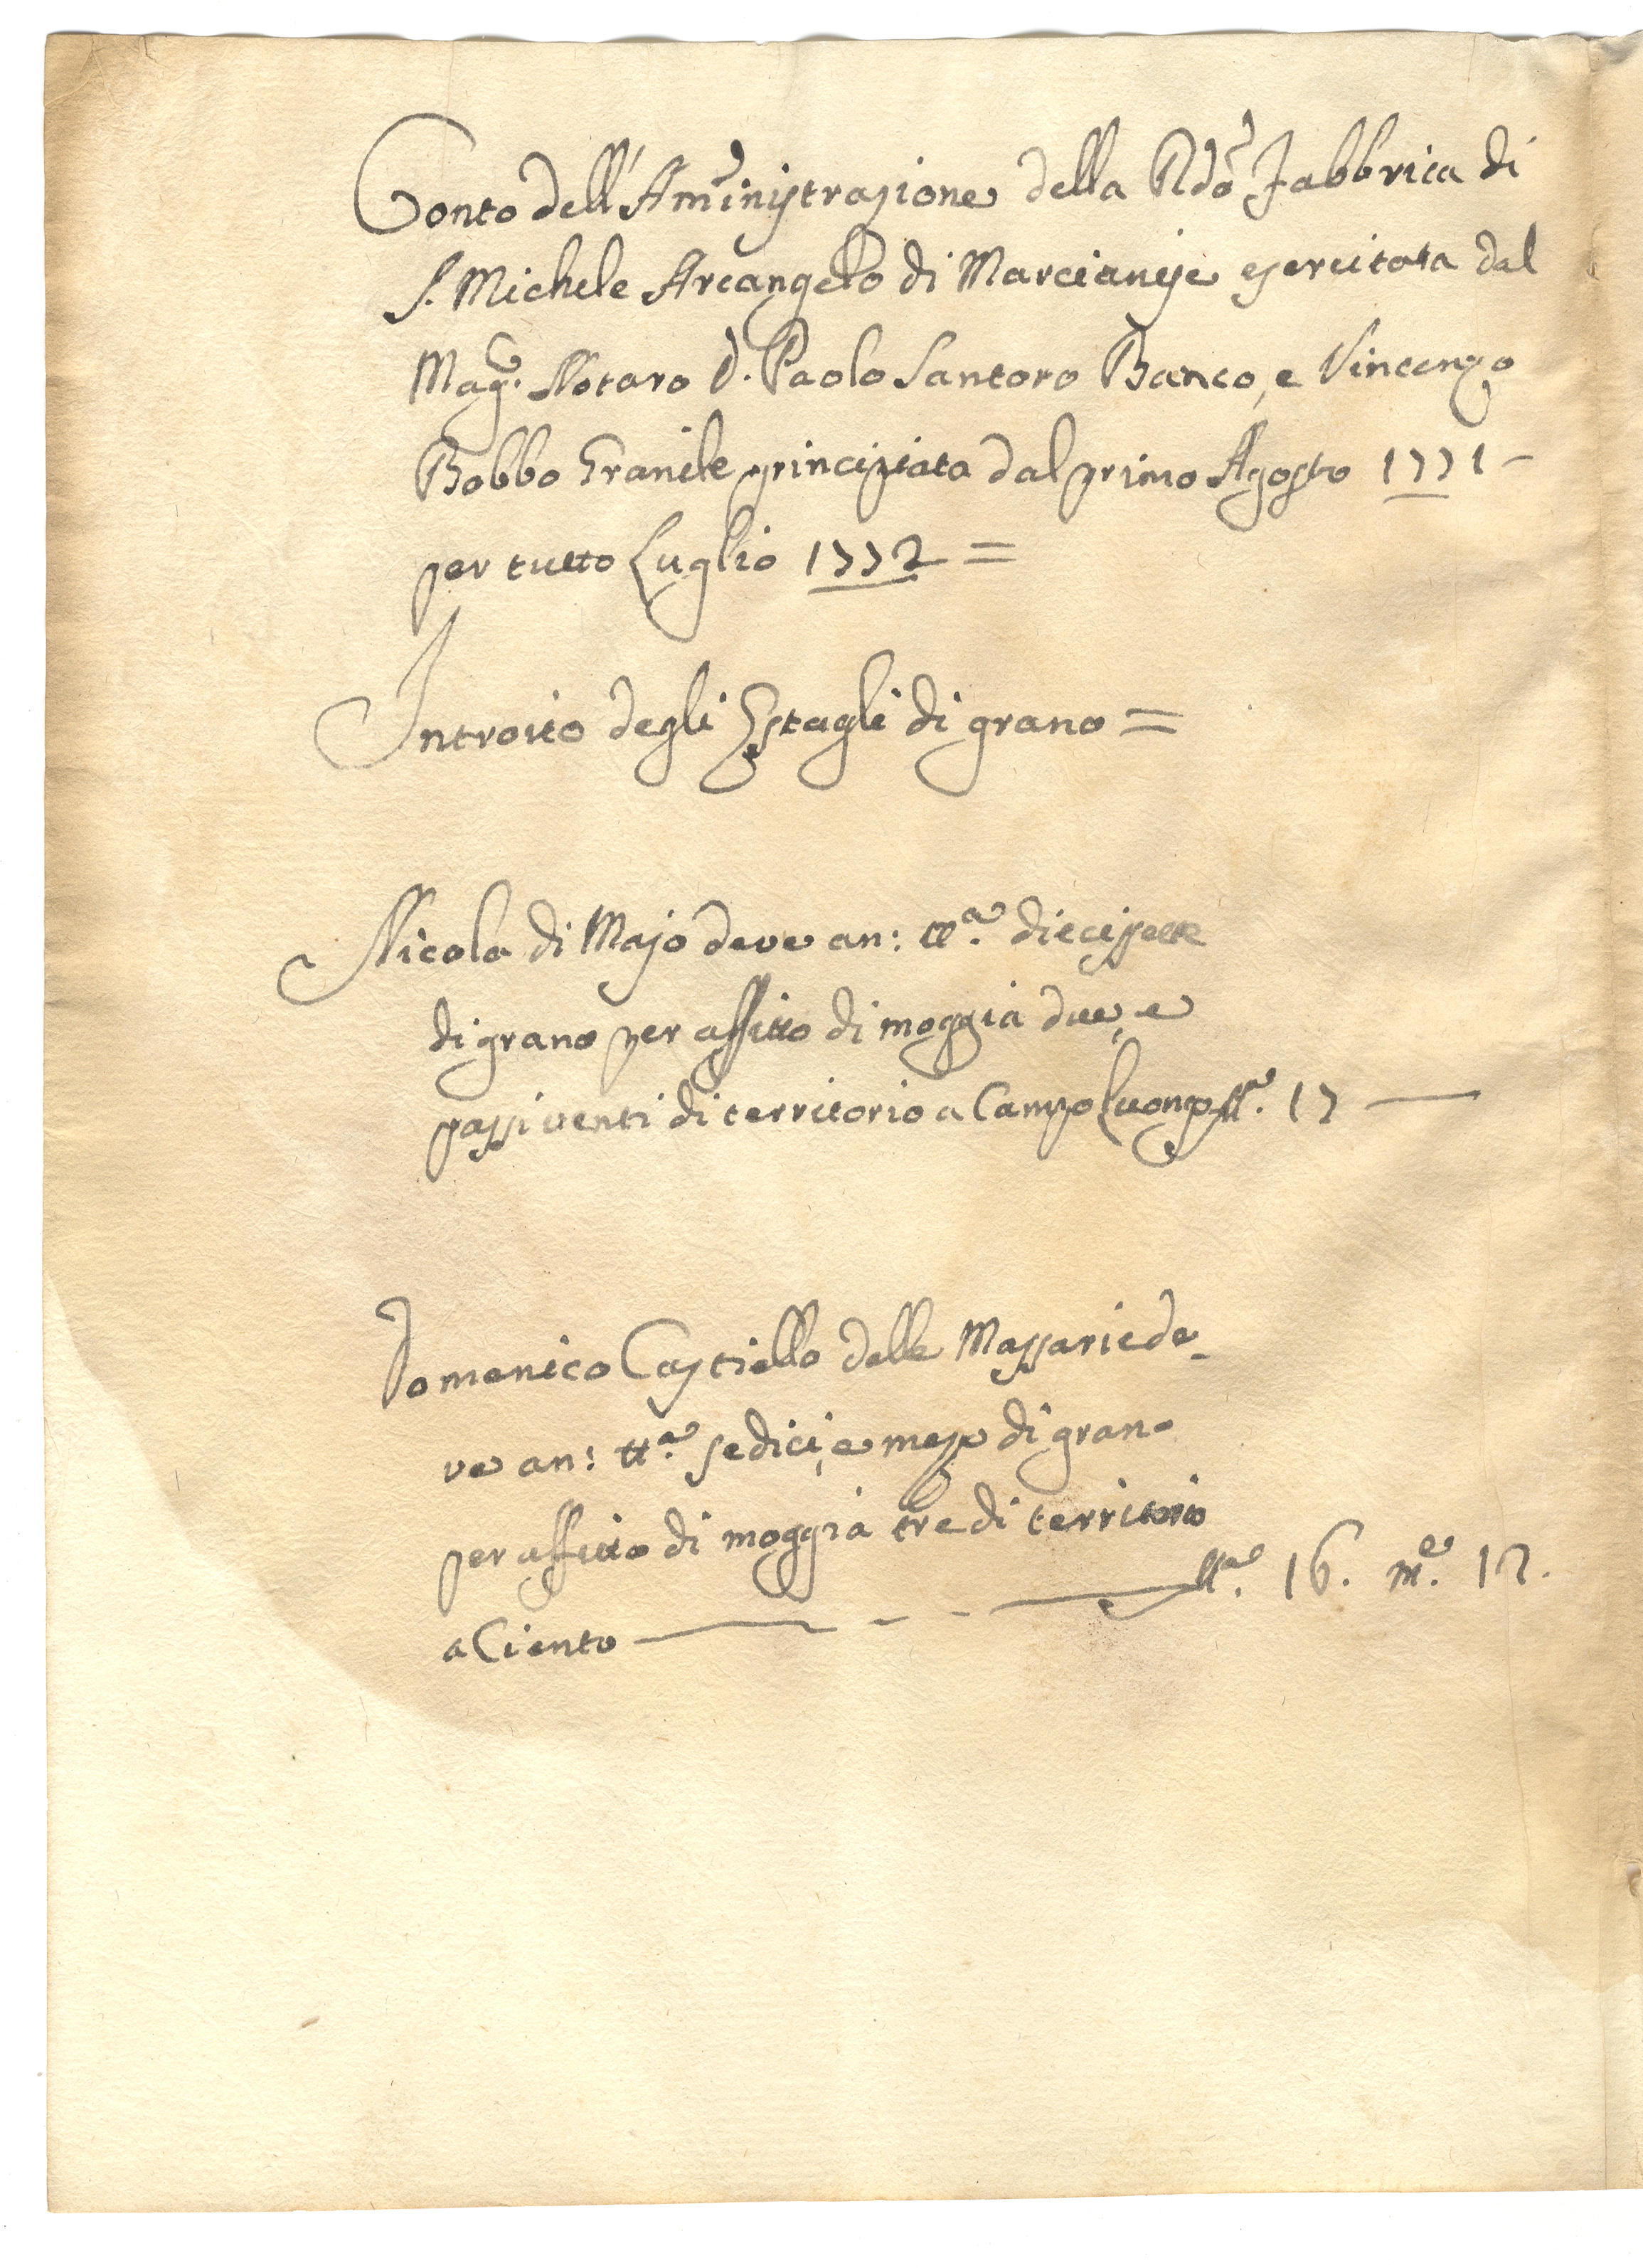 Conto dell'Amministrazione della Rda Fabbrica di
S. Michele Arcangelo di Marcianise esercitata dal
Mag.co Notaro D. Paolo Santoro Banco, e Vincenzo
Bobbo Granile principiata dal primo Agosto 1771 -
per tutto Luglio 1772 =
Introito degli Estagli di grano =
Nicola di Majo deve an: tt.a diecissette
di grano per affitto di moggia due, e
passi venti di territorio a Campo Luongo tt.a 17 —
Domenico Castiello delle Massarie de-
ve an: tt.a sedici, e mezo di grano
per affitto di moggia tre di territorio
a Ciento — - - — tt.a 16. m.e 12.